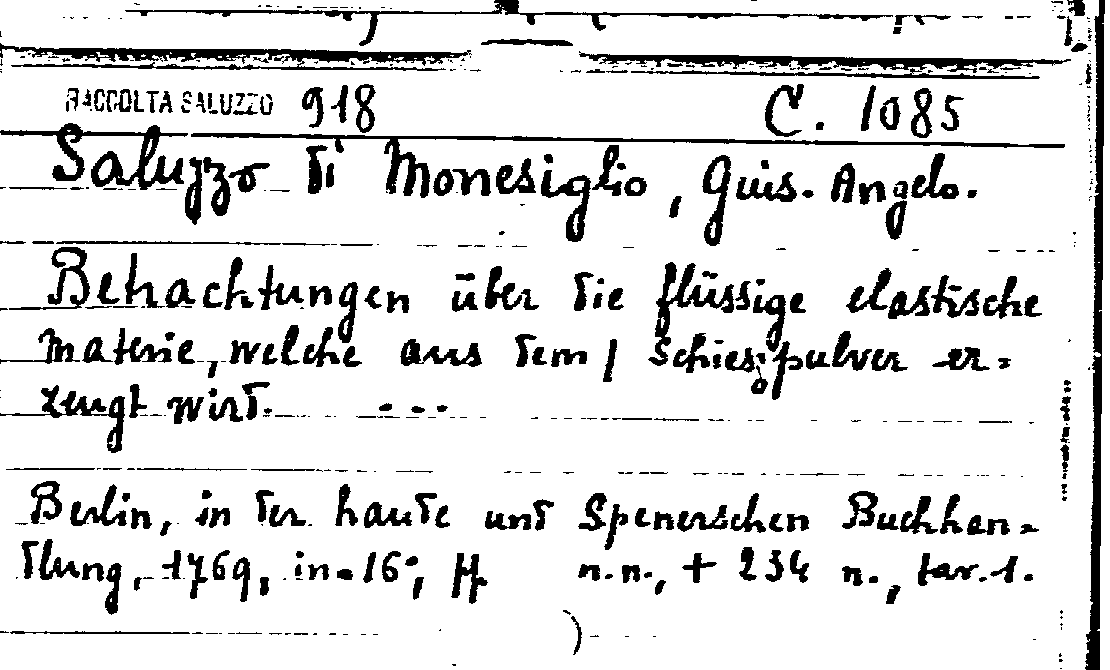 RACCOLTA SALUZZO 918 C. 1085
Saluzzo di Monesiglio, Guis. Angelo.
Betrachtungen über die flüssige elastische
materie, welche aus dem / Schiespulver er=
zeugt wird. ...
Berlin, in der haude und Spenerschen Buchhan=
dlung, 1769, in-16°, ff n.n., + 234 n., tav. 1.